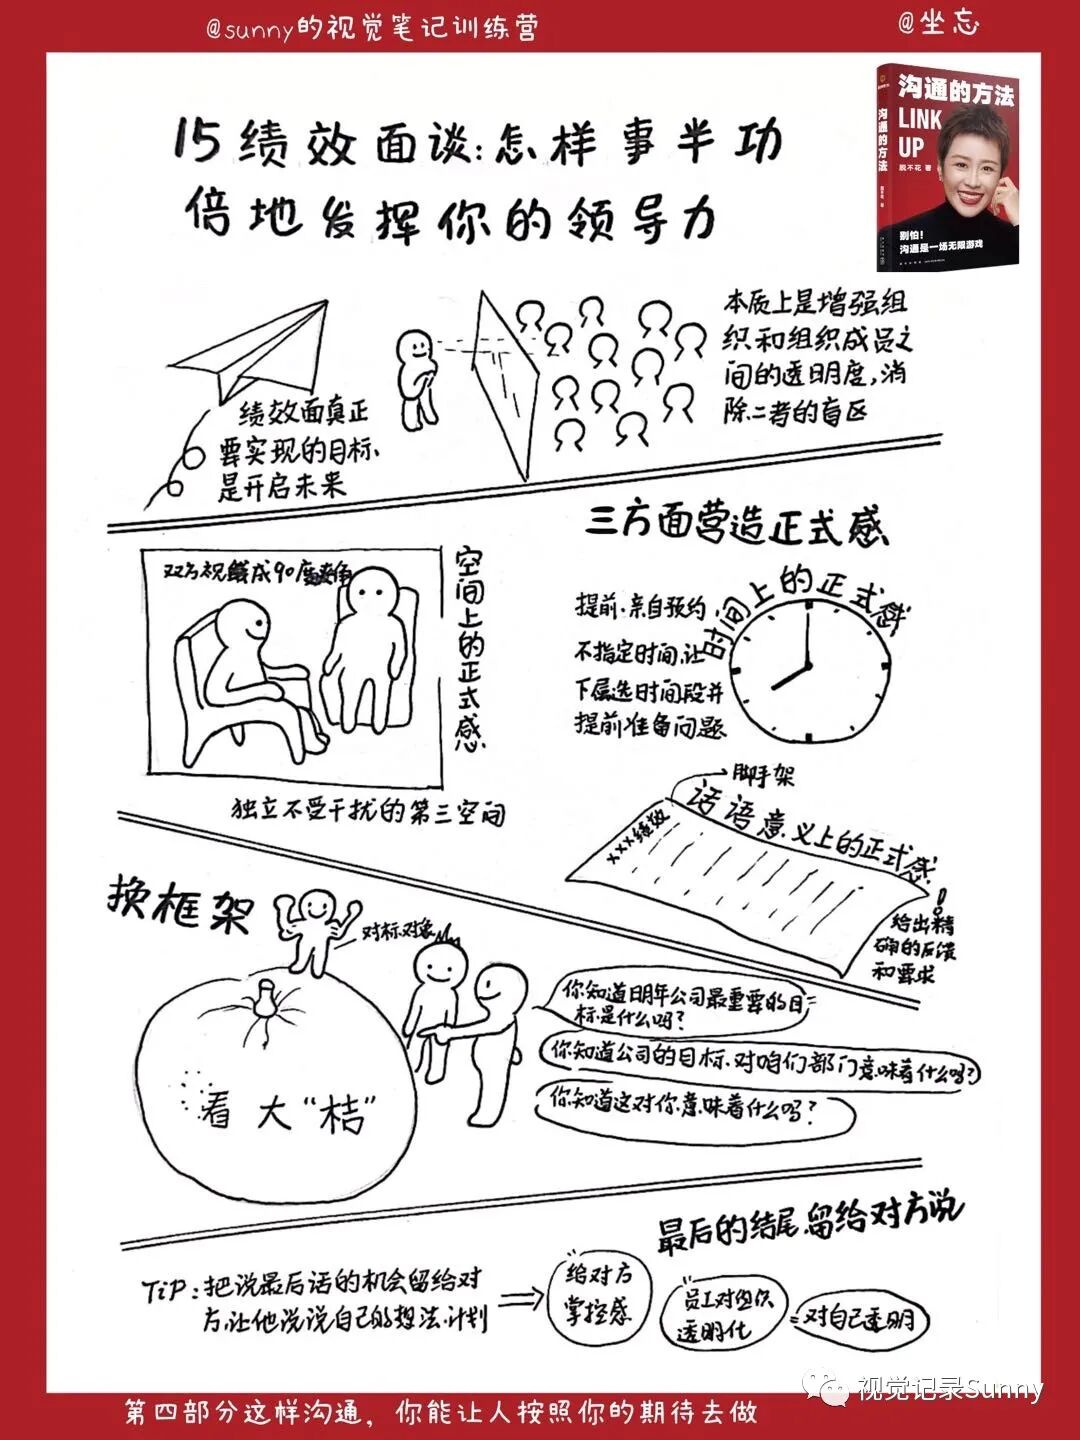 @sunny的视觉笔记训练营
@坐忘
沟通的方法
LINK
UP
脱不花 著
沟通的方法
别怕！
沟通是一场无限游戏
15绩效面谈:怎样事半功
倍地发挥你的领导力
绩效面真正
要实现的目标
是开启未来
本质上是增强组
织和组织成员之
间的透明度,消
除二者的盲区
三方面营造正式感
双方视线成90度夹角
空间上的正式感
独立不受干扰的第三空间
时间上的正式感
提前.亲自预约
不指定时间,让
下属选时间段并
提前准备问题
脚手架
话语意义上的正式感
xxx绩效
给出精
确的反馈
和要求
换框架
对标对象
看大“桔”
你知道明年公司最重要的目
标是什么吗?
你知道公司的目标对咱们部门意味着什么吗?
你知道这对你意味着什么吗?
最后的结尾留给对方说
TiP:把说最后话的机会留给对
方,让他说说自己的想法.计划
给对方
掌控感
员工对组织
透明化
=对自己透明
视觉记录Sunny
第四部分这样沟通，你能让人按照你的期待去做